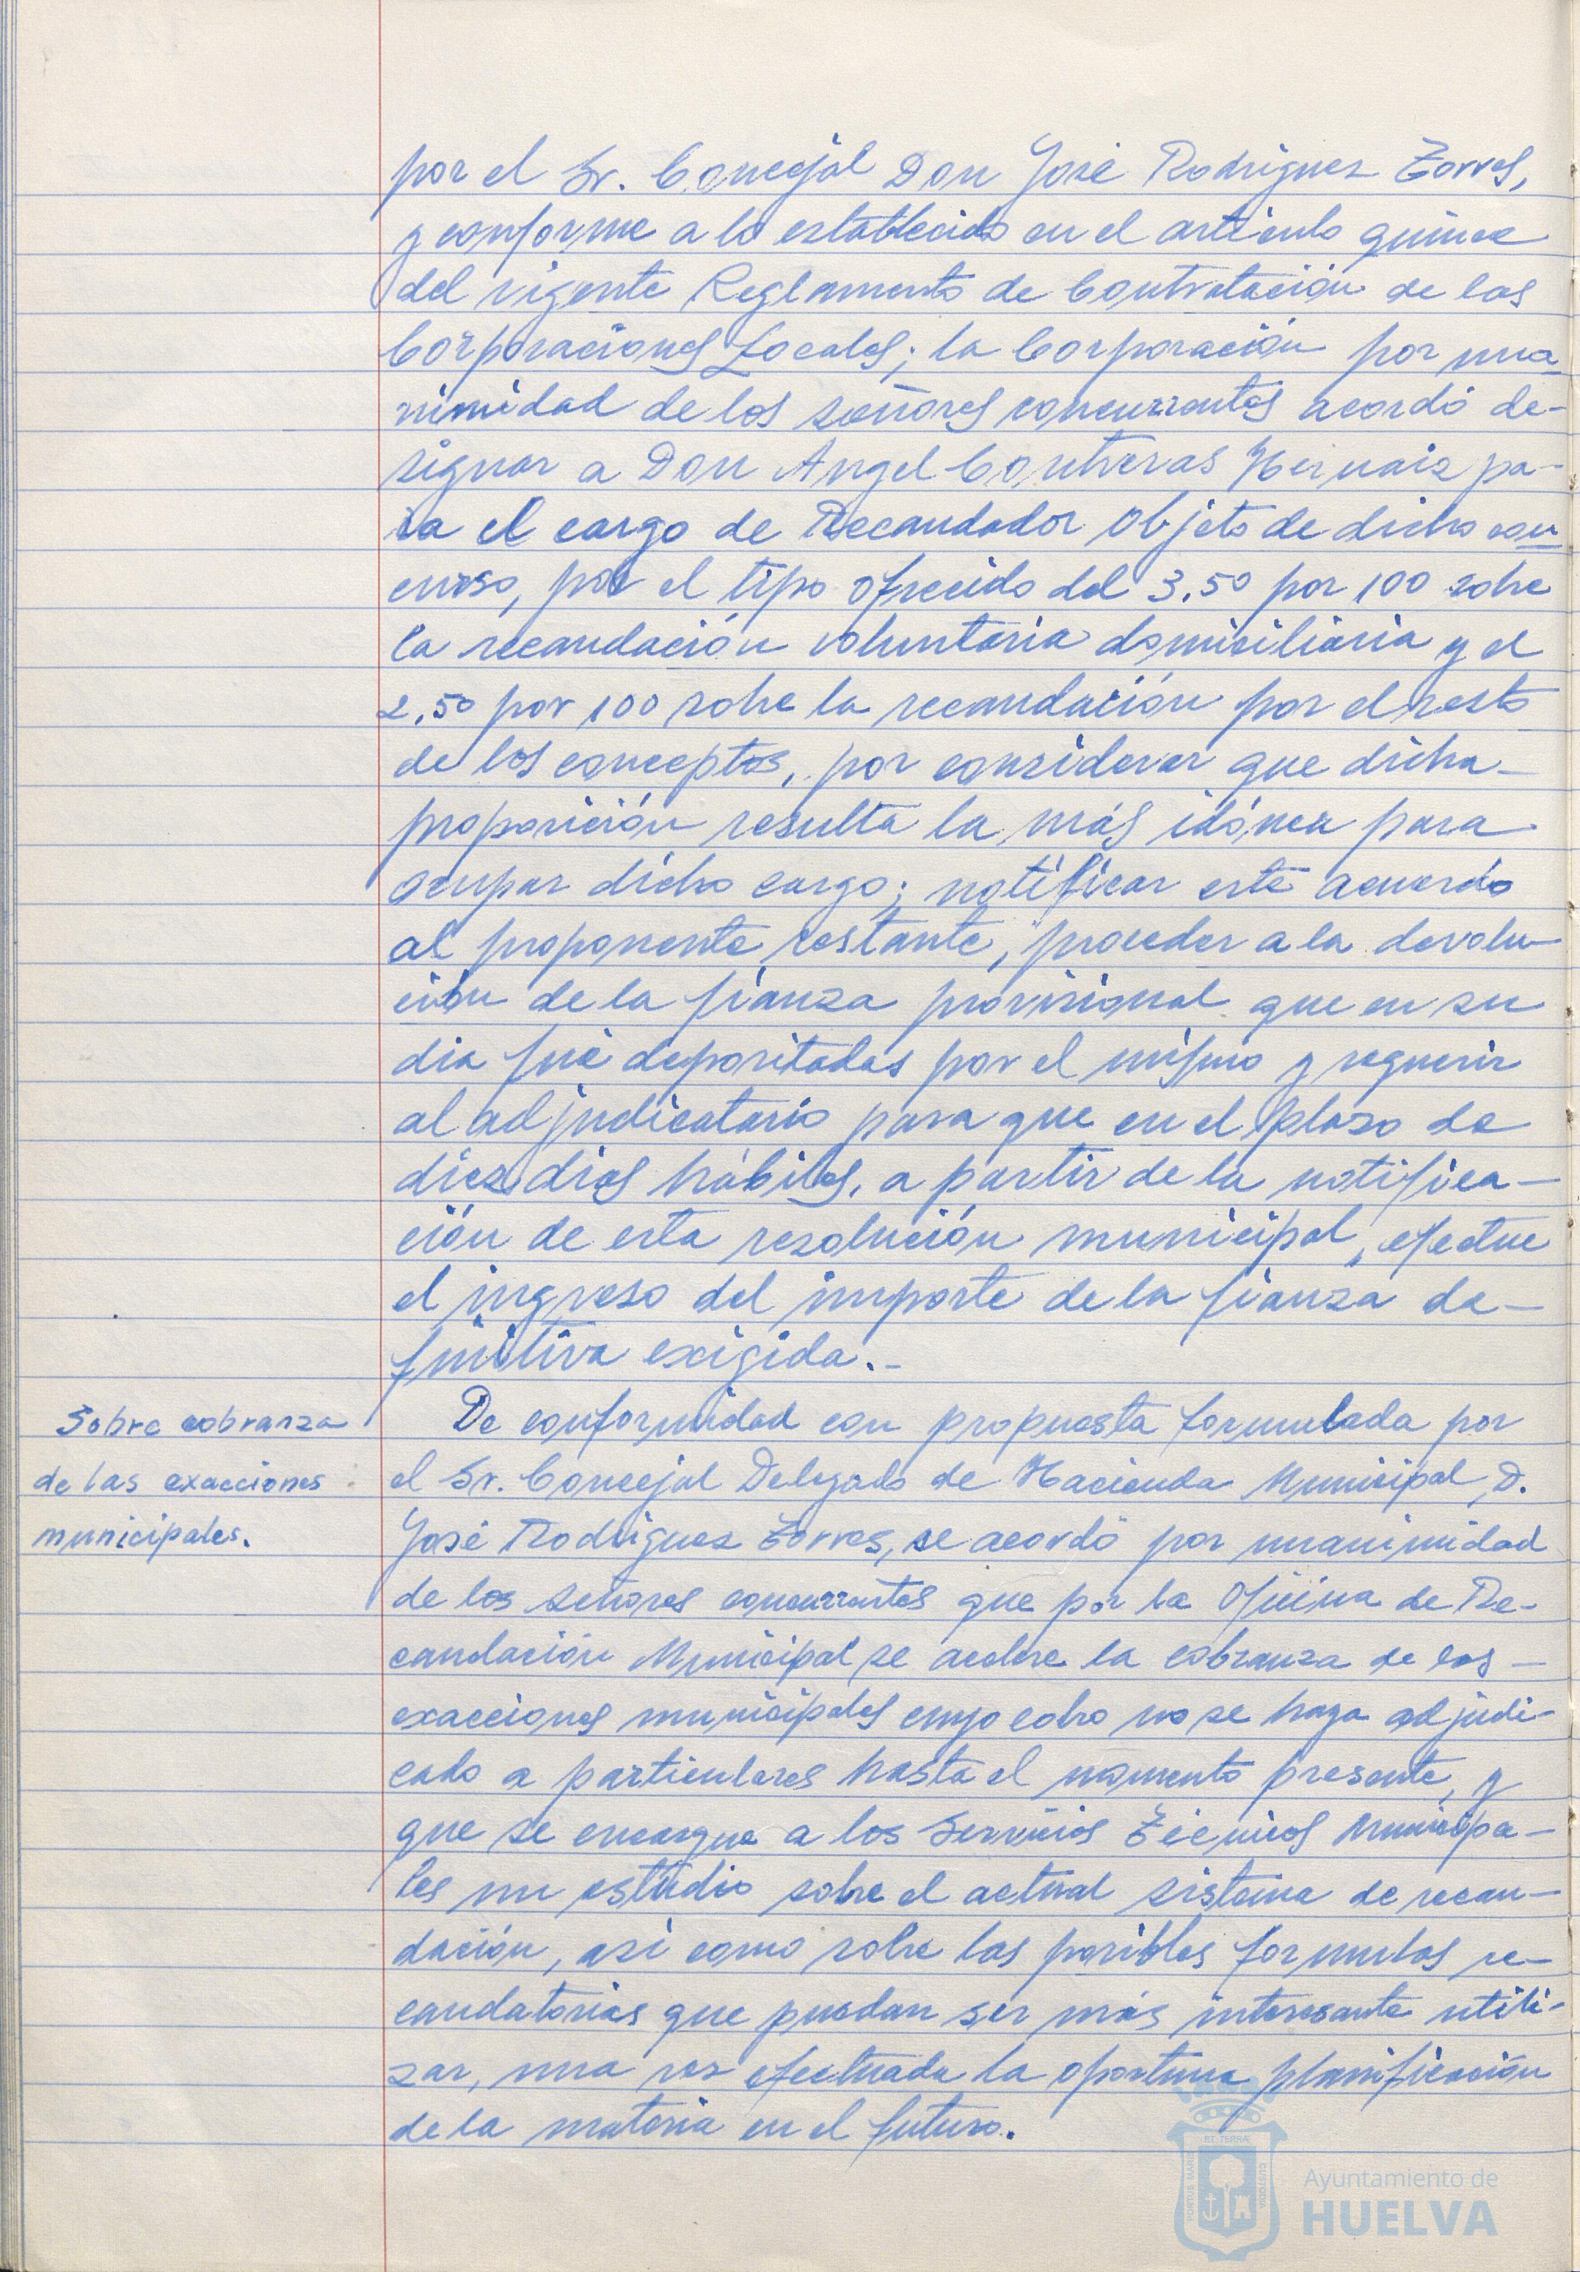 por el Sr. Concejal Don José Rodríguez Torres,
y conforme a lo establecido en el artículo quince
del vigente Reglamento de Contratación de las
Corporaciones Locales; la Corporación por una
nimidad de los señores concurrentes acordó de-
signar a Don Angel Contreras Hernaiz pa-
ra el cargo de Recaudador objeto de dicho con
curso, por el tipo ofrecido del 3,50 por 100 sobre
la recaudación voluntaria domiciliaria y el
2,50 por 100 sobre la recaudación por el resto
de los conceptos, por considerar que dicha
proposición resulta la más idónea para
ocupar dicho cargo; notificar este acuerdo
al proponente restante, proceder a la devolu-
ción de la fianza provisional que en su
dia fué depositadas por el mismo y requerir
al adjudicatario para que en el plazo de
diez dias hábiles, a partir de la notifica-
ción de esta resolución municipal, efectue
el ingreso del importe de la fianza de-
finitiva exigida.-
Sobre cobranza
de las exacciones
municipales.
De conformidad con propuesta formulada por
el Sr. Concejal Delegado de Hacienda Municipal, D.
José Rodríguez Torres, se acordó por unanimidad
de los señores concurrentes que por la Oficina de Re-
caudación Municipal se acelere la cobranza de las
exacciones municipales cuyo cobro no se haya adjudi-
cado a particulares hasta el momento presente, y
que se encargue a los Servicios Técnicos Municipa-
les un estudio sobre el actual sistema de recau-
dación, así como sobre las posibles formulas re-
caudatorias que puedan ser más interesante utili-
zar, una vez efectuada la oportuna planificación
de la materia en el futuro.
PORTUS MARIS
ET TERRA
CUSTODIA
Ayuntamiento de
HUELVA